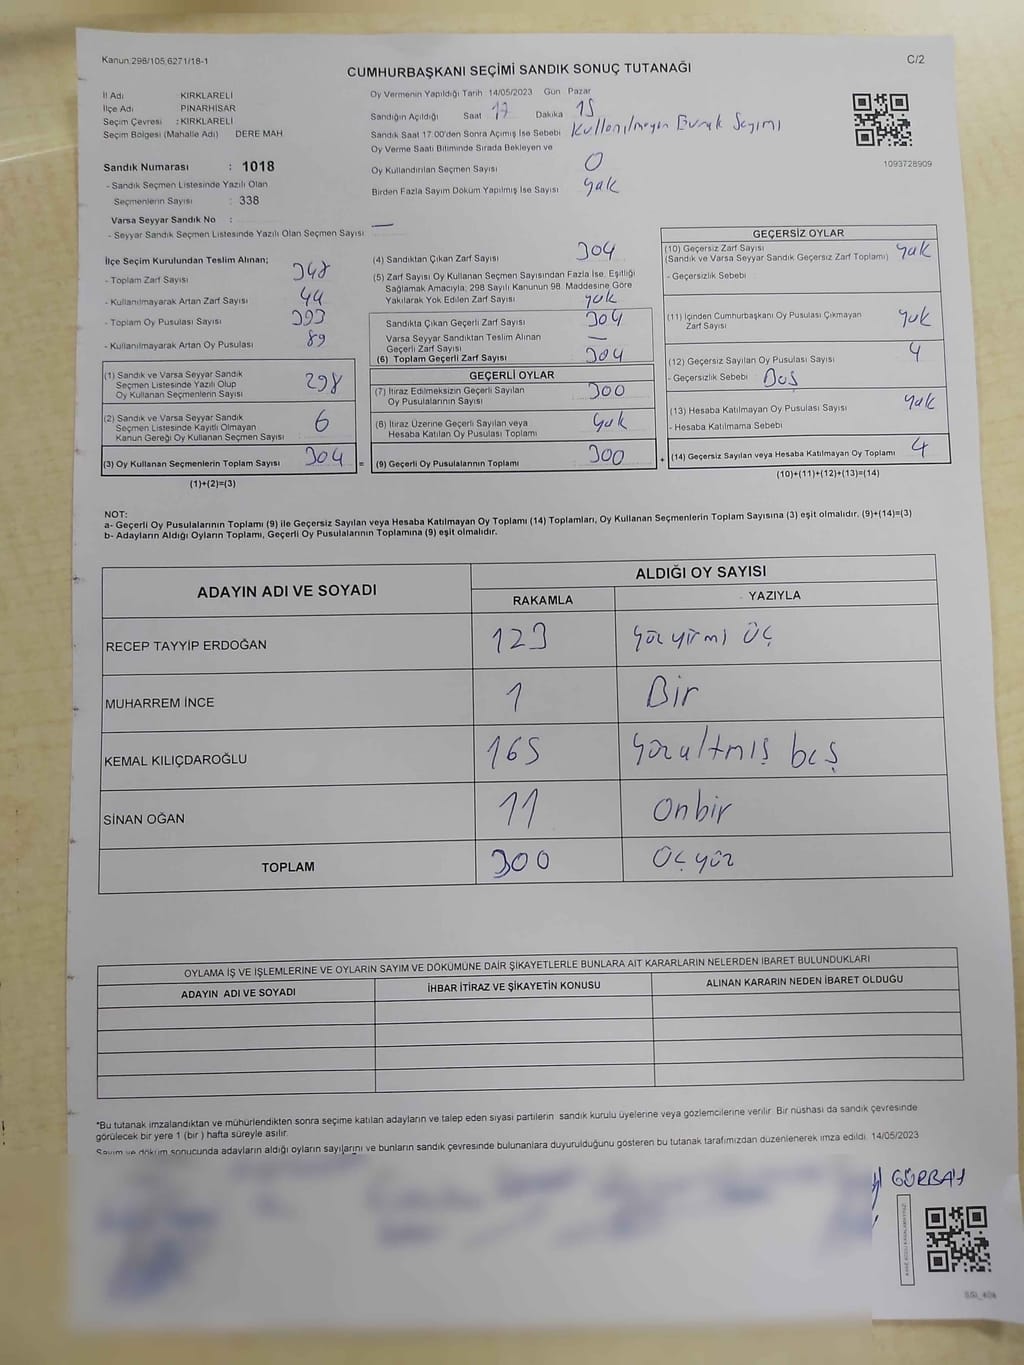 Kanun.298/105,6271/18-1
C/2
CUMHURBAŞKANI SEÇİMİ SANDIK SONUÇ TUTANAĞI
İl Adı : KIRKLARELİ
İlçe Adı : PINARHİSAR
Seçim Çevresi : KIRKLARELİ
Seçim Bölgesi (Mahalle Adı) DERE MAH
Sandık Numarası : 1018
- Sandık Seçmen Listesinde Yazılı Olan
Seçmenlerin Sayısı : 338
Varsa Seyyar Sandık No :
- Seyyar Sandık Seçmen Listesinde Yazılı Olan Seçmen Sayısı —
Oy Vermenin Yapıldığı Tarih 14/05/2023 Gün Pazar
Sandığın Açıldığı Saat 17 Dakika 15
Sandık Saat 17:00'den Sonra Açımış İse Sebebi Kullanılmayan Evrak Sayımı
Oy Verme Saati Bitiminde Sırada Bekleyen ve
Oy Kullandırılan Seçmen Sayısı 0
Birden Fazla Sayım Döküm Yapılmış İse Sayısı yok
1093728909
İlçe Seçim Kurulundan Teslim Alınan;
- Toplam Zarf Sayısı 348
- Kullanılmayarak Artan Zarf Sayısı 44
- Toplam Oy Pusulası Sayısı 393
- Kullanılmayarak Artan Oy Pusulası 89
(1) Sandık ve Varsa Seyyar Sandık
Seçmen Listesinde Yazılı Olup
Oy Kullanan Seçmenlerin Sayısı 298
(2) Sandık ve Varsa Seyyar Sandık
Seçmen Listesinde Kayıtlı Olmayan
Kanun Gereği Oy Kullanan Seçmen Sayısı 6
(3) Oy Kullanan Seçmenlerin Toplam Sayısı 304 =
(1)+(2)=(3)
(4) Sandıktan Çıkan Zarf Sayısı 304
(5) Zarf Sayısı Oy Kullanan Seçmen Sayısından Fazla İse, Eşitliği
Sağlamak Amacıyla; 298 Sayılı Kanunun 98. Maddesine Göre
Yakılarak Yok Edilen Zarf Sayısı yok
Sandıkta Çıkan Geçerli Zarf Sayısı 304
Varsa Seyyar Sandıktan Teslim Alınan
Geçerli Zarf Sayısı —
(6) Toplam Geçerli Zarf Sayısı 304
GEÇERLİ OYLAR
(7) İtiraz Edilmeksizin Geçerli Sayılan
Oy Pusulalarının Sayısı 300
(8) İtiraz Üzerine Geçerli Sayılan veya
Hesaba Katılan Oy Pusulası Toplamı yok
(9) Geçerli Oy Pusulalarının Toplamı 300 +
GEÇERSİZ OYLAR
(10) Geçersiz Zarf Sayısı
(Sandık ve Varsa Seyyar Sandık Geçersiz Zarf Toplamı) yok
- Geçersizlik Sebebi
(11) İçinden Cumhurbaşkanı Oy Pusulası Çıkmayan
Zarf Sayısı yok
(12) Geçersiz Sayılan Oy Pusulası Sayısı 4
- Geçersizlik Sebebi Boş
(13) Hesaba Katılmayan Oy Pusulası Sayısı yok
- Hesaba Katılmama Sebebi
(14) Geçersiz Sayılan veya Hesaba Katılmayan Oy Toplamı 4
(10)+(11)+(12)+(13)=(14)
NOT:
a- Geçerli Oy Pusulalarının Toplamı (9) ile Geçersiz Sayılan veya Hesaba Katılmayan Oy Toplamı (14) Toplamları, Oy Kullanan Seçmenlerin Toplam Sayısına (3) eşit olmalıdır. (9)+(14)=(3)
b- Adayların Aldığı Oyların Toplamı, Geçerli Oy Pusulalarının Toplamına (9) eşit olmalıdır.
ADAYIN ADI VE SOYADI
ALDIĞI OY SAYISI
RAKAMLA YAZIYLA
RECEP TAYYİP ERDOĞAN 123 yüz yirmi üç
MUHARREM İNCE 1 Bir
KEMAL KILIÇDAROĞLU 165 yüzaltmış beş
SİNAN OĞAN 11 onbir
TOPLAM 300 üçyüz
OYLAMA İŞ VE İŞLEMLERİNE VE OYLARIN SAYIM VE DÖKÜMÜNE DAİR ŞİKAYETLERLE BUNLARA AİT KARARLARIN NELERDEN İBARET BULUNDUKLARI
ADAYIN ADI VE SOYADI İHBAR İTİRAZ VE ŞİKAYETİN KONUSU ALINAN KARARIN NEDEN İBARET OLDUĞU
*Bu tutanak imzalandıktan ve mühürlendikten sonra seçime katılan adayların ve talep eden siyasi partilerin sandık kurulu üyelerine veya gözlemcilerine verilir. Bir nüshası da sandık çevresinde
görülecek bir yere 1 (bir ) hafta süreyle asılır.
Sayım ve döküm sonucunda adayların aldığı oyların sayılarını ve bunların sandık çevresinde bulunanlara duyurulduğunu gösteren bu tutanak tarafımızdan düzenlenerek imza edildi. 14/05/2023